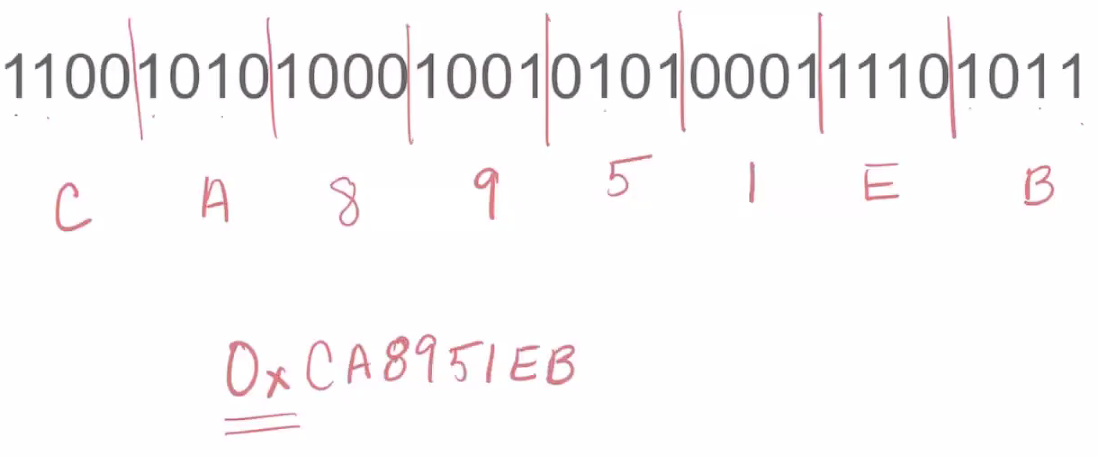 11001010100010010101000111101011
C A 8 9 5 1 E B
0xCA8951EB